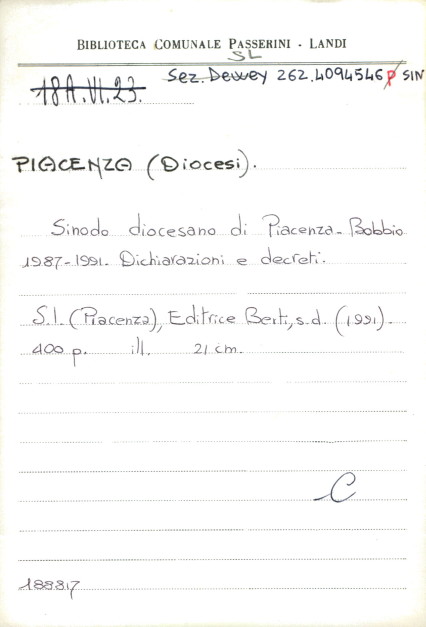 BIBLIOTECA COMUNALE PASSERINI - LANDI
SL
18A.VI.23.
Sez. Dewey 262.4094546 SIN
PIACENZA (Diocesi).
Sinodo diocesano di Piacenza-Bobbio
1987-1991. Dichiarazioni e decreti.
S.l. (Piacenza), Editrice Berti, s.d. (1991).
400 p. ill. 21 cm.
C
188817